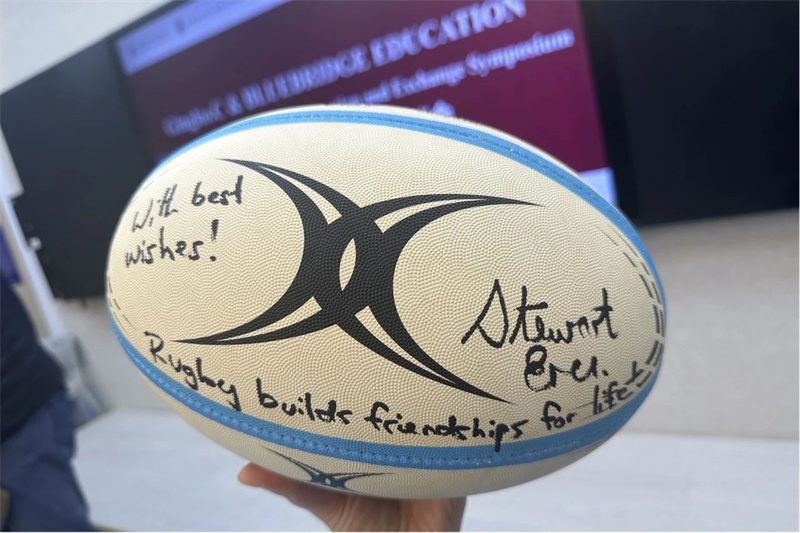 & BLUEBRIDGE EDUCATION
and Exchange Symposium
With best
wishes!
Stewart
Rugby builds friendships for life